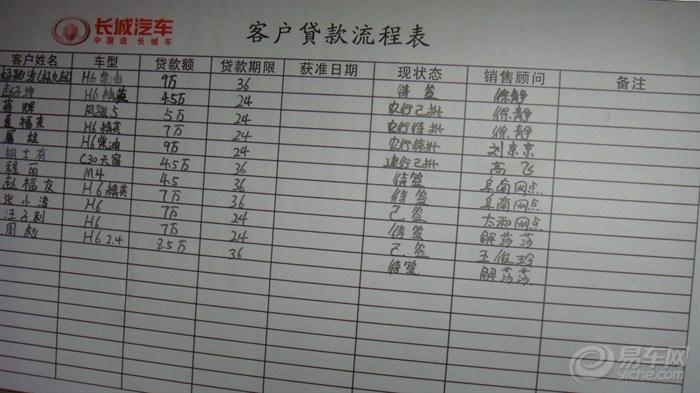 长城汽车
中国造 长城车
客户贷款流程表
客户姓名 车型 贷款额 贷款期限 获准日期 现状态 销售顾问 备注
H6柴油 9万 36 待签 徐静
H6精英 4.5万 24 农行已批 徐静
风骏5 5万 24 农行待批 徐静
夏福英 H6精英 7万 24 农行待批 刘京京
H6柴油 9万 24 建行已批 高飞
C30天窗 4.5万 36 待签 阜南网点
程丽 M4 4.5 36 待签 阜南网点
赵福友 H6精英 7万 36 已签 太和网点
张小清 H6 7万 24 待签 解莎莎
H6 7万 24 已签 王俊玲
周彪 H6 2.4 8.5万 36 待签 解莎莎
易车网
yiche.com